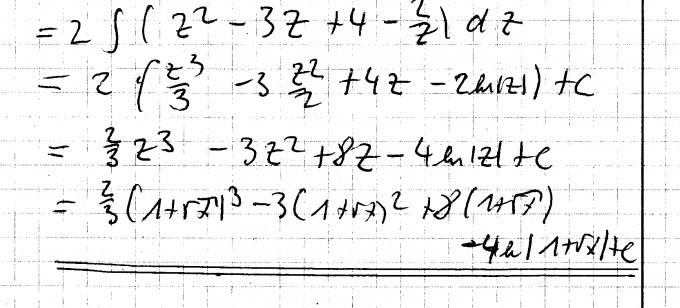 = 2 ∫ ( z² - 3z + 4 - 2/z ) dz
= 2 ( z³/3 - 3 z²/2 + 4z - 2 ln|z| ) + C
= 2/3 z³ - 3z² + 8z - 4 ln|z| + C
= 2/3 (1+√x)³ - 3(1+√x)² + 8(1+√x)
- 4 ln|1+√x| + C